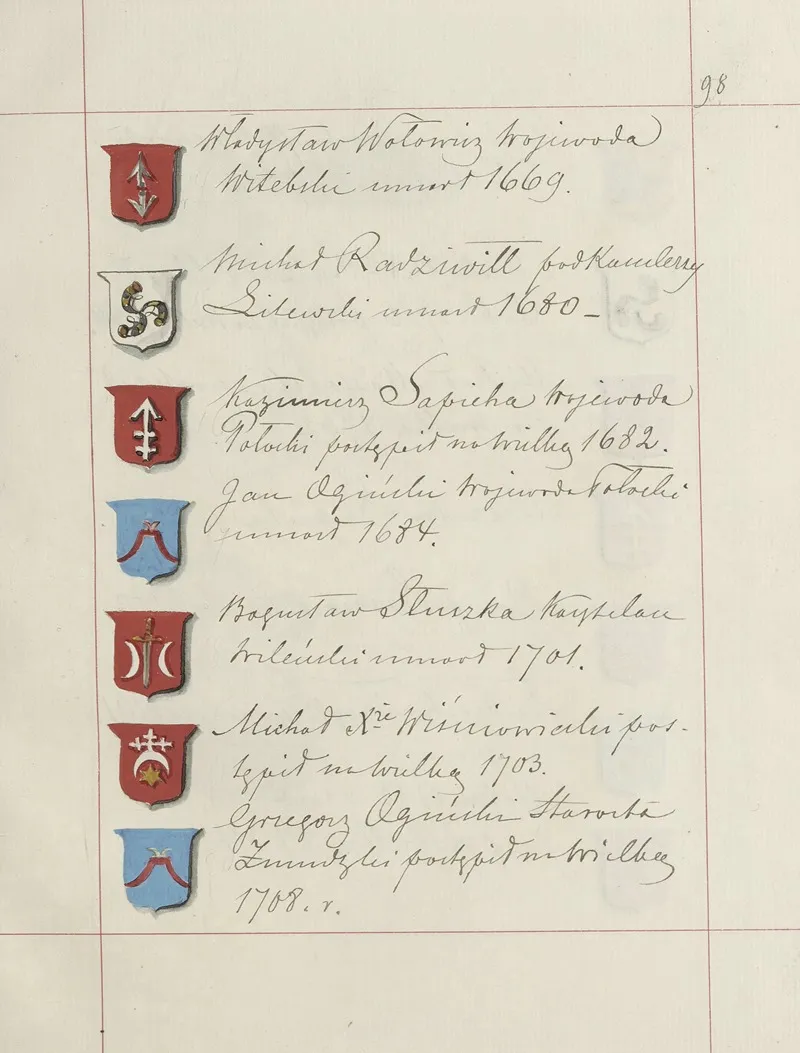 98
Władysław Wołowicz Wojewoda
Witebski umarł 1669.
Michał Radziwiłł podkanclerzy
Litewski umarł 1680 –
Kazimierz Sapieha Wojewoda
Połocki postąpił na wielką 1682.
Jan Ogiński Wojewoda Połocki
umarł 1684.
Bogusław Słuszka Kasztelan
Wileński umarł 1701.
Michał Xże Wiśniowiecki pos-
tąpił na wielką 1703.
Grzegorz Ogiński Starosta
Żmudzki postąpił na wielką
1708. r.